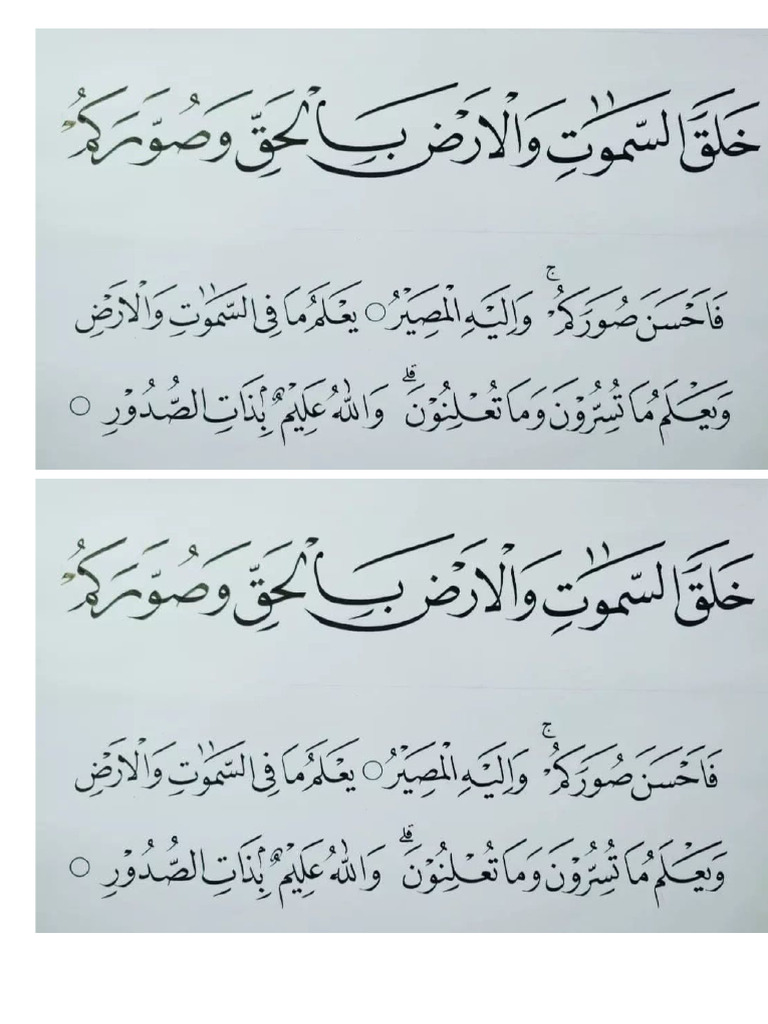 خَلَقَ السَّمٰوٰتِ وَالْاَرْضَ بِالْحَقِّ وَصَوَّرَكُمْ
فَاَحْسَنَ صُوَرَكُمْۚ وَاِلَيْهِ الْمَصِيْرُ ○ يَعْلَمُ مَا فِى السَّمٰوٰتِ وَالْاَرْضِ
وَيَعْلَمُ مَا تُسِرُّوْنَ وَمَا تُعْلِنُوْنَۗ وَاللّٰهُ عَلِيْمٌۢ بِذَاتِ الصُّدُوْرِ ○
خَلَقَ السَّمٰوٰتِ وَالْاَرْضَ بِالْحَقِّ وَصَوَّرَكُمْ
فَاَحْسَنَ صُوَرَكُمْۚ وَاِلَيْهِ الْمَصِيْرُ ○ يَعْلَمُ مَا فِى السَّمٰوٰتِ وَالْاَرْضِ
وَيَعْلَمُ مَا تُسِرُّوْنَ وَمَا تُعْلِنُوْنَۗ وَاللّٰهُ عَلِيْمٌۢ بِذَاتِ الصُّدُوْرِ ○